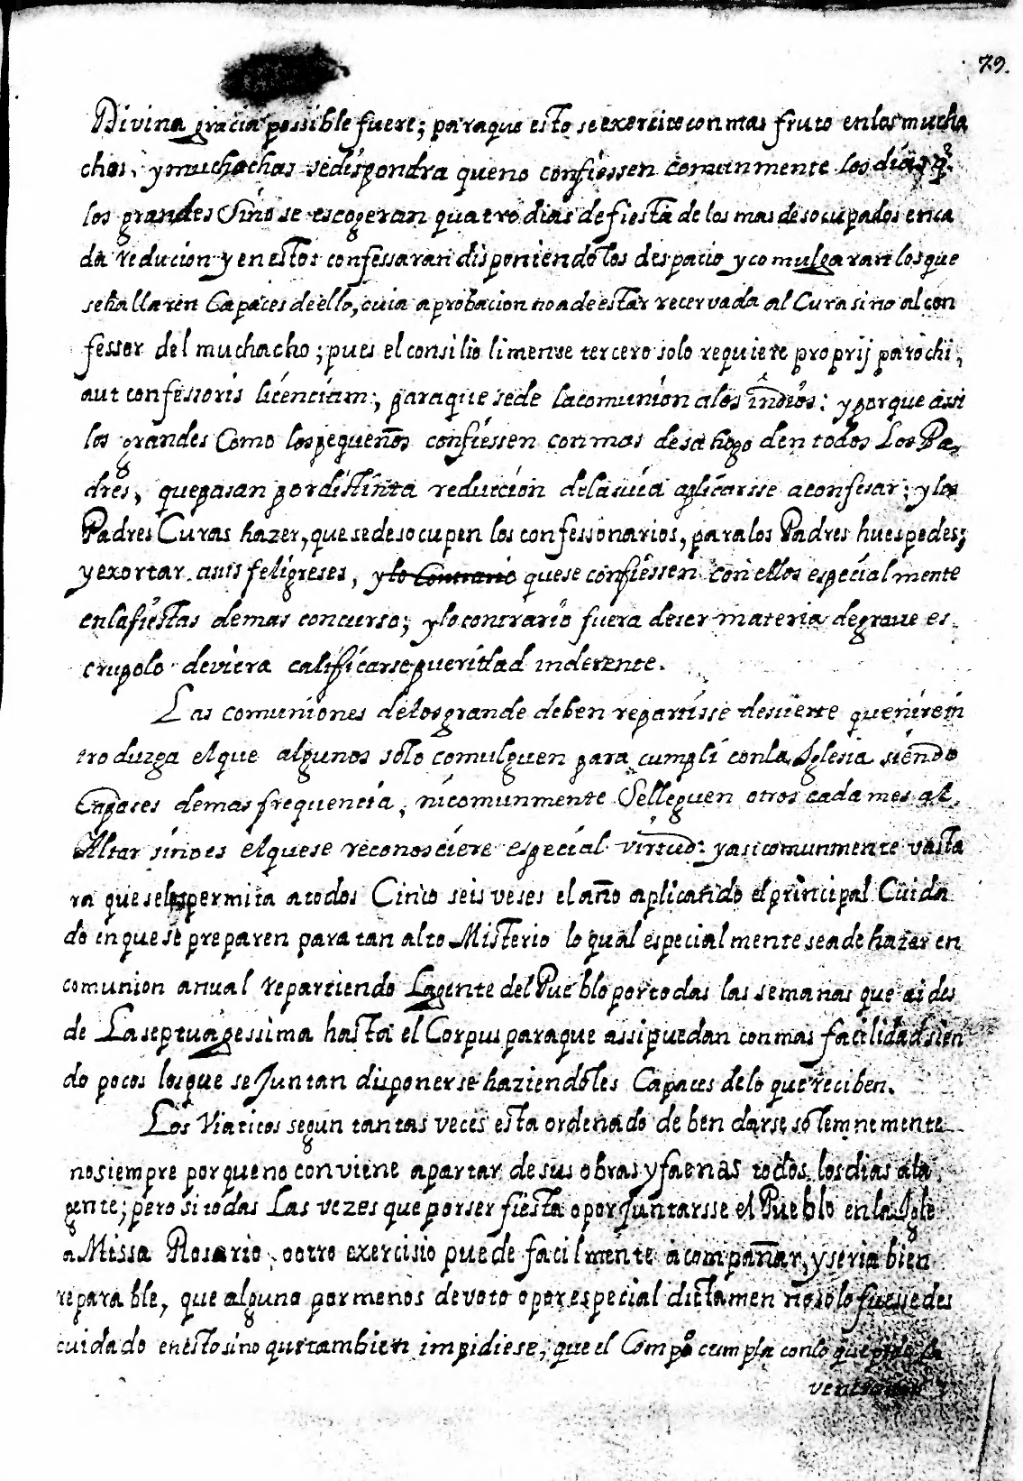 79.
Divina gracia possible fuere; paraque esto se exercite con mas fruto en los mucha
chos, y muchachas se dispondra que no confiessen comunmente los dias q.^e
los grandes Sino se escogeran quatro dias de fiesta de los mas desocupados en ca
da reducion y en estos confessaran disponiendolos despacio y comulgaran los que
se hallaren Capaces de ello, cuia aprobacion no a de estar recervada al Cura sino al con
fessor del muchacho; pues el consilio limense tercero solo requiere proprij parochi,
aut confessoris licenciam, paraque se de la comunion a los indios: y porque assi
los grandes Como los pequeños confiessen con mas desahogo den todos Los Pa
dres, que pasan por distinta reducion de la suia aplicarsse a confesar; y los
Padres Curas hazer, que se desocupen los confessionarios, para los Padres huespedes;
y exortar a sus feligreses, y lo Contrario que se confiessen con ellos especialmente
en la fiestas de mas concurso; y lo contrario fuera de ser materia de graue es
crupolo deviera calificarse puerilidad indecente.
Las comuniones de los grande deben repartisse de suerte que ni se in
troduzga el que algunos solo comulguen para cumpli con la Iglesia siendo
Capaces de mas frequencia, ni comunmente Se lleguen otros cada mes al
Altar sino es el que se reconosciere especial virtud: y asi comunmente vasta
ra que se les permita a todos Cinco seis veses el año aplicando el principal Cuida
do en que se preparen para tan alto Misterio lo qual especialmente se a de hazer en
comunion anual repartiendo La gente del Pueblo por todas las semanas que ai des
de La septuagessima hasta el Corpus paraque assi puedan con mas facilidad sien
do pocos los que se Juntan disponerse haziendoles Capaces de lo que reciben.
Los Viaticos segun tantas veces esta ordenado deben darse solemnemente
no siempre porque no conviene apartar de sus obras y faenas todos los dias a la
gente; pero si todas Las vezes que por ser fiesta o por Juntarsse el Pueblo en la Igle
a Missa Rosario, o otro exercisio puede facilmente acompañar, y seria bien
reparable, que alguno por menos devoto o por especial dictamen no solo fuesse des
cuidado en esto sino que tambien impidiese, que el Comp.^o cumpla con lo que pide la